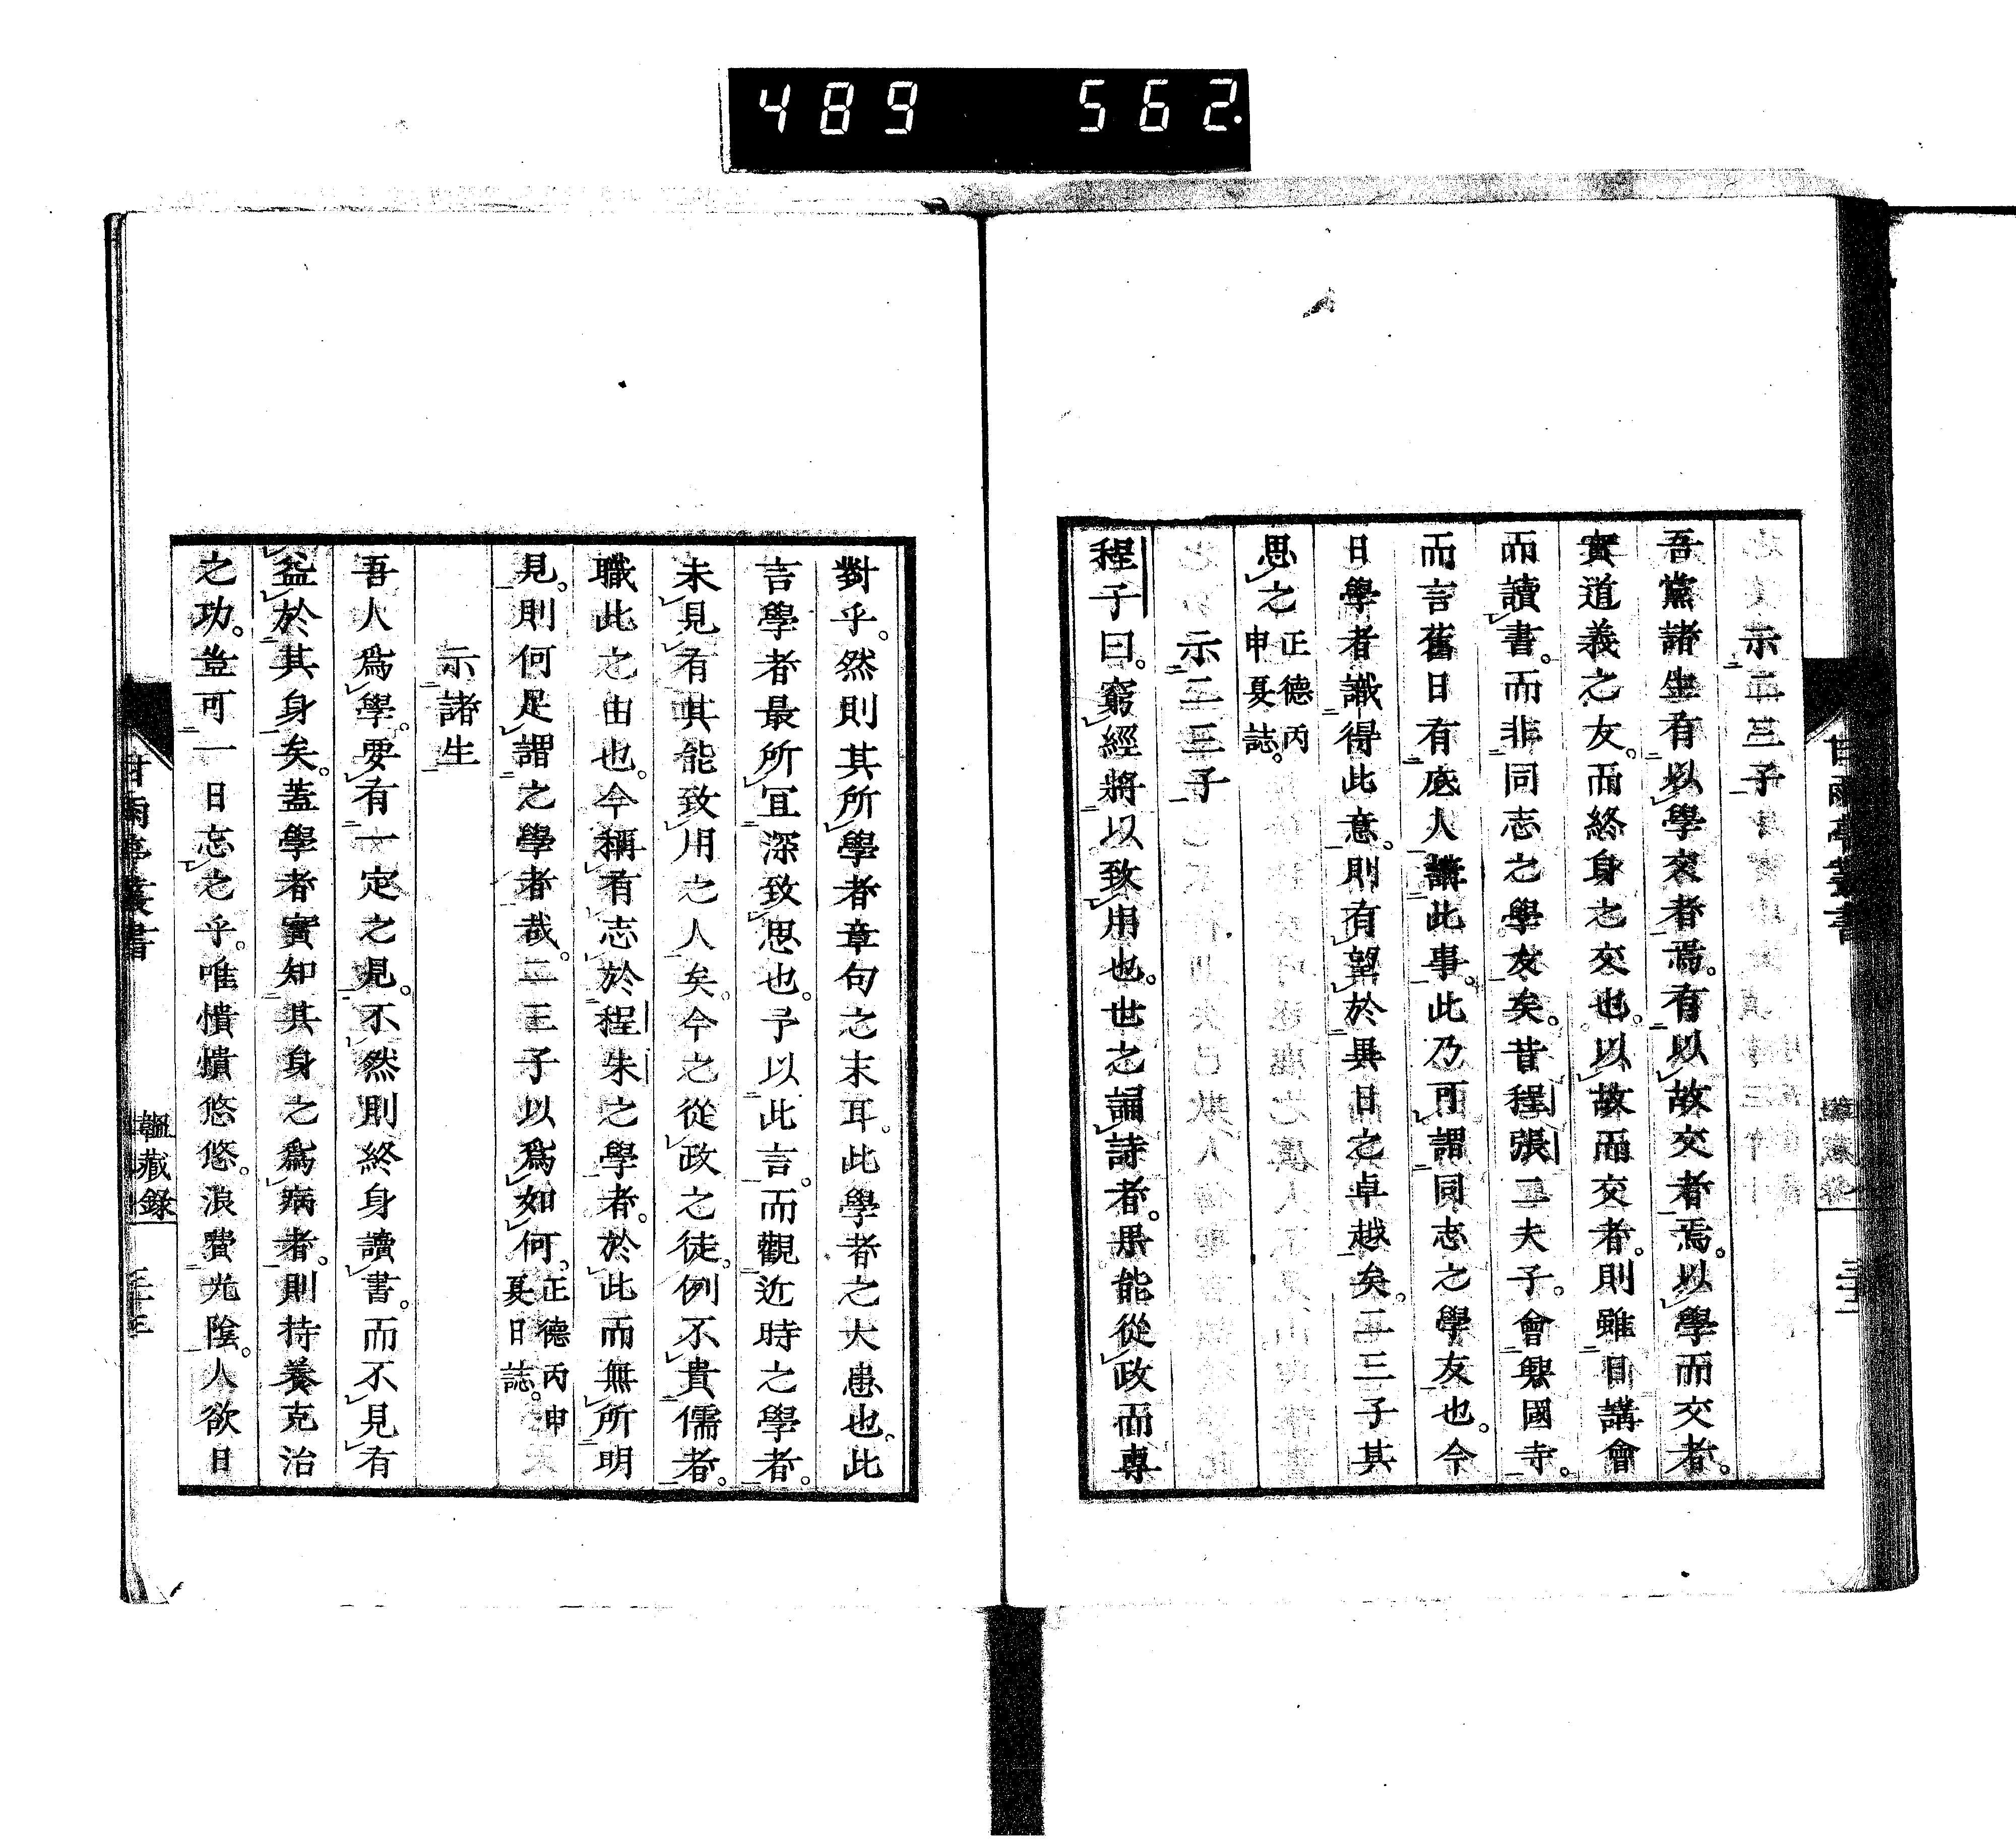 489 562.
示二三子
吾黨諸生有以學來者焉。有以故交者焉。以學而交者。
實道義之友。而終身之交也。以故而交者。則雖日講會
而讀書。而非同志之學友矣。昔程張二夫子。會興國寺。
而言舊日有底人講此事。此乃可謂同志之學友也。今
日學者識得此意。則有望於異日之卓越矣。二三子其
思之正德丙申夏誌。
示二三子
程子曰。窮經將以致用也。世之誦詩者。果能從政而專
對乎。然則其所學者章句之末耳。此學者之大患也。此
言學者最所宜深致思也。予以此言。而觀近時之學者。
未見有其能致用之人矣。今之從政之徒。例不貴儒者。
職此之由也。今稱有志於程朱之學者。於此而無所明
見。則何足謂之學者哉。二三子以爲如何。正德丙申夏日誌。
示諸生
吾人爲學。要有一定之見。不然則終身讀書。而不見有
益於其身矣。蓋學者實知其身之爲病者。則持養克治
之功。豈可一日忘之乎。唯憒憒悠悠。浪費光陰。人欲日
甘雨亭叢書 韞藏錄